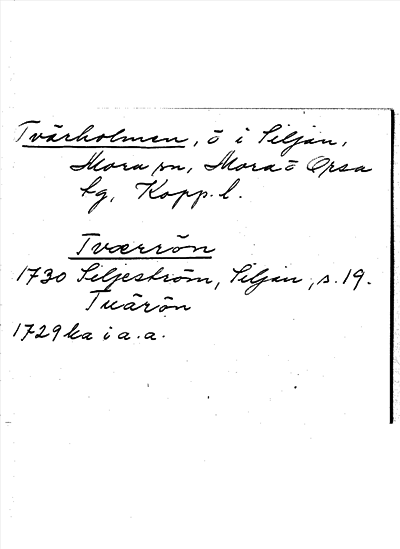 Tvärholmen, ö i Siljan,
Mora sn, Mora o Orsa
tg, Kopp. l.
Tværrön
1730 Siljeström, Siljan, s. 19.
Tuärön
1729 ka i a.a.